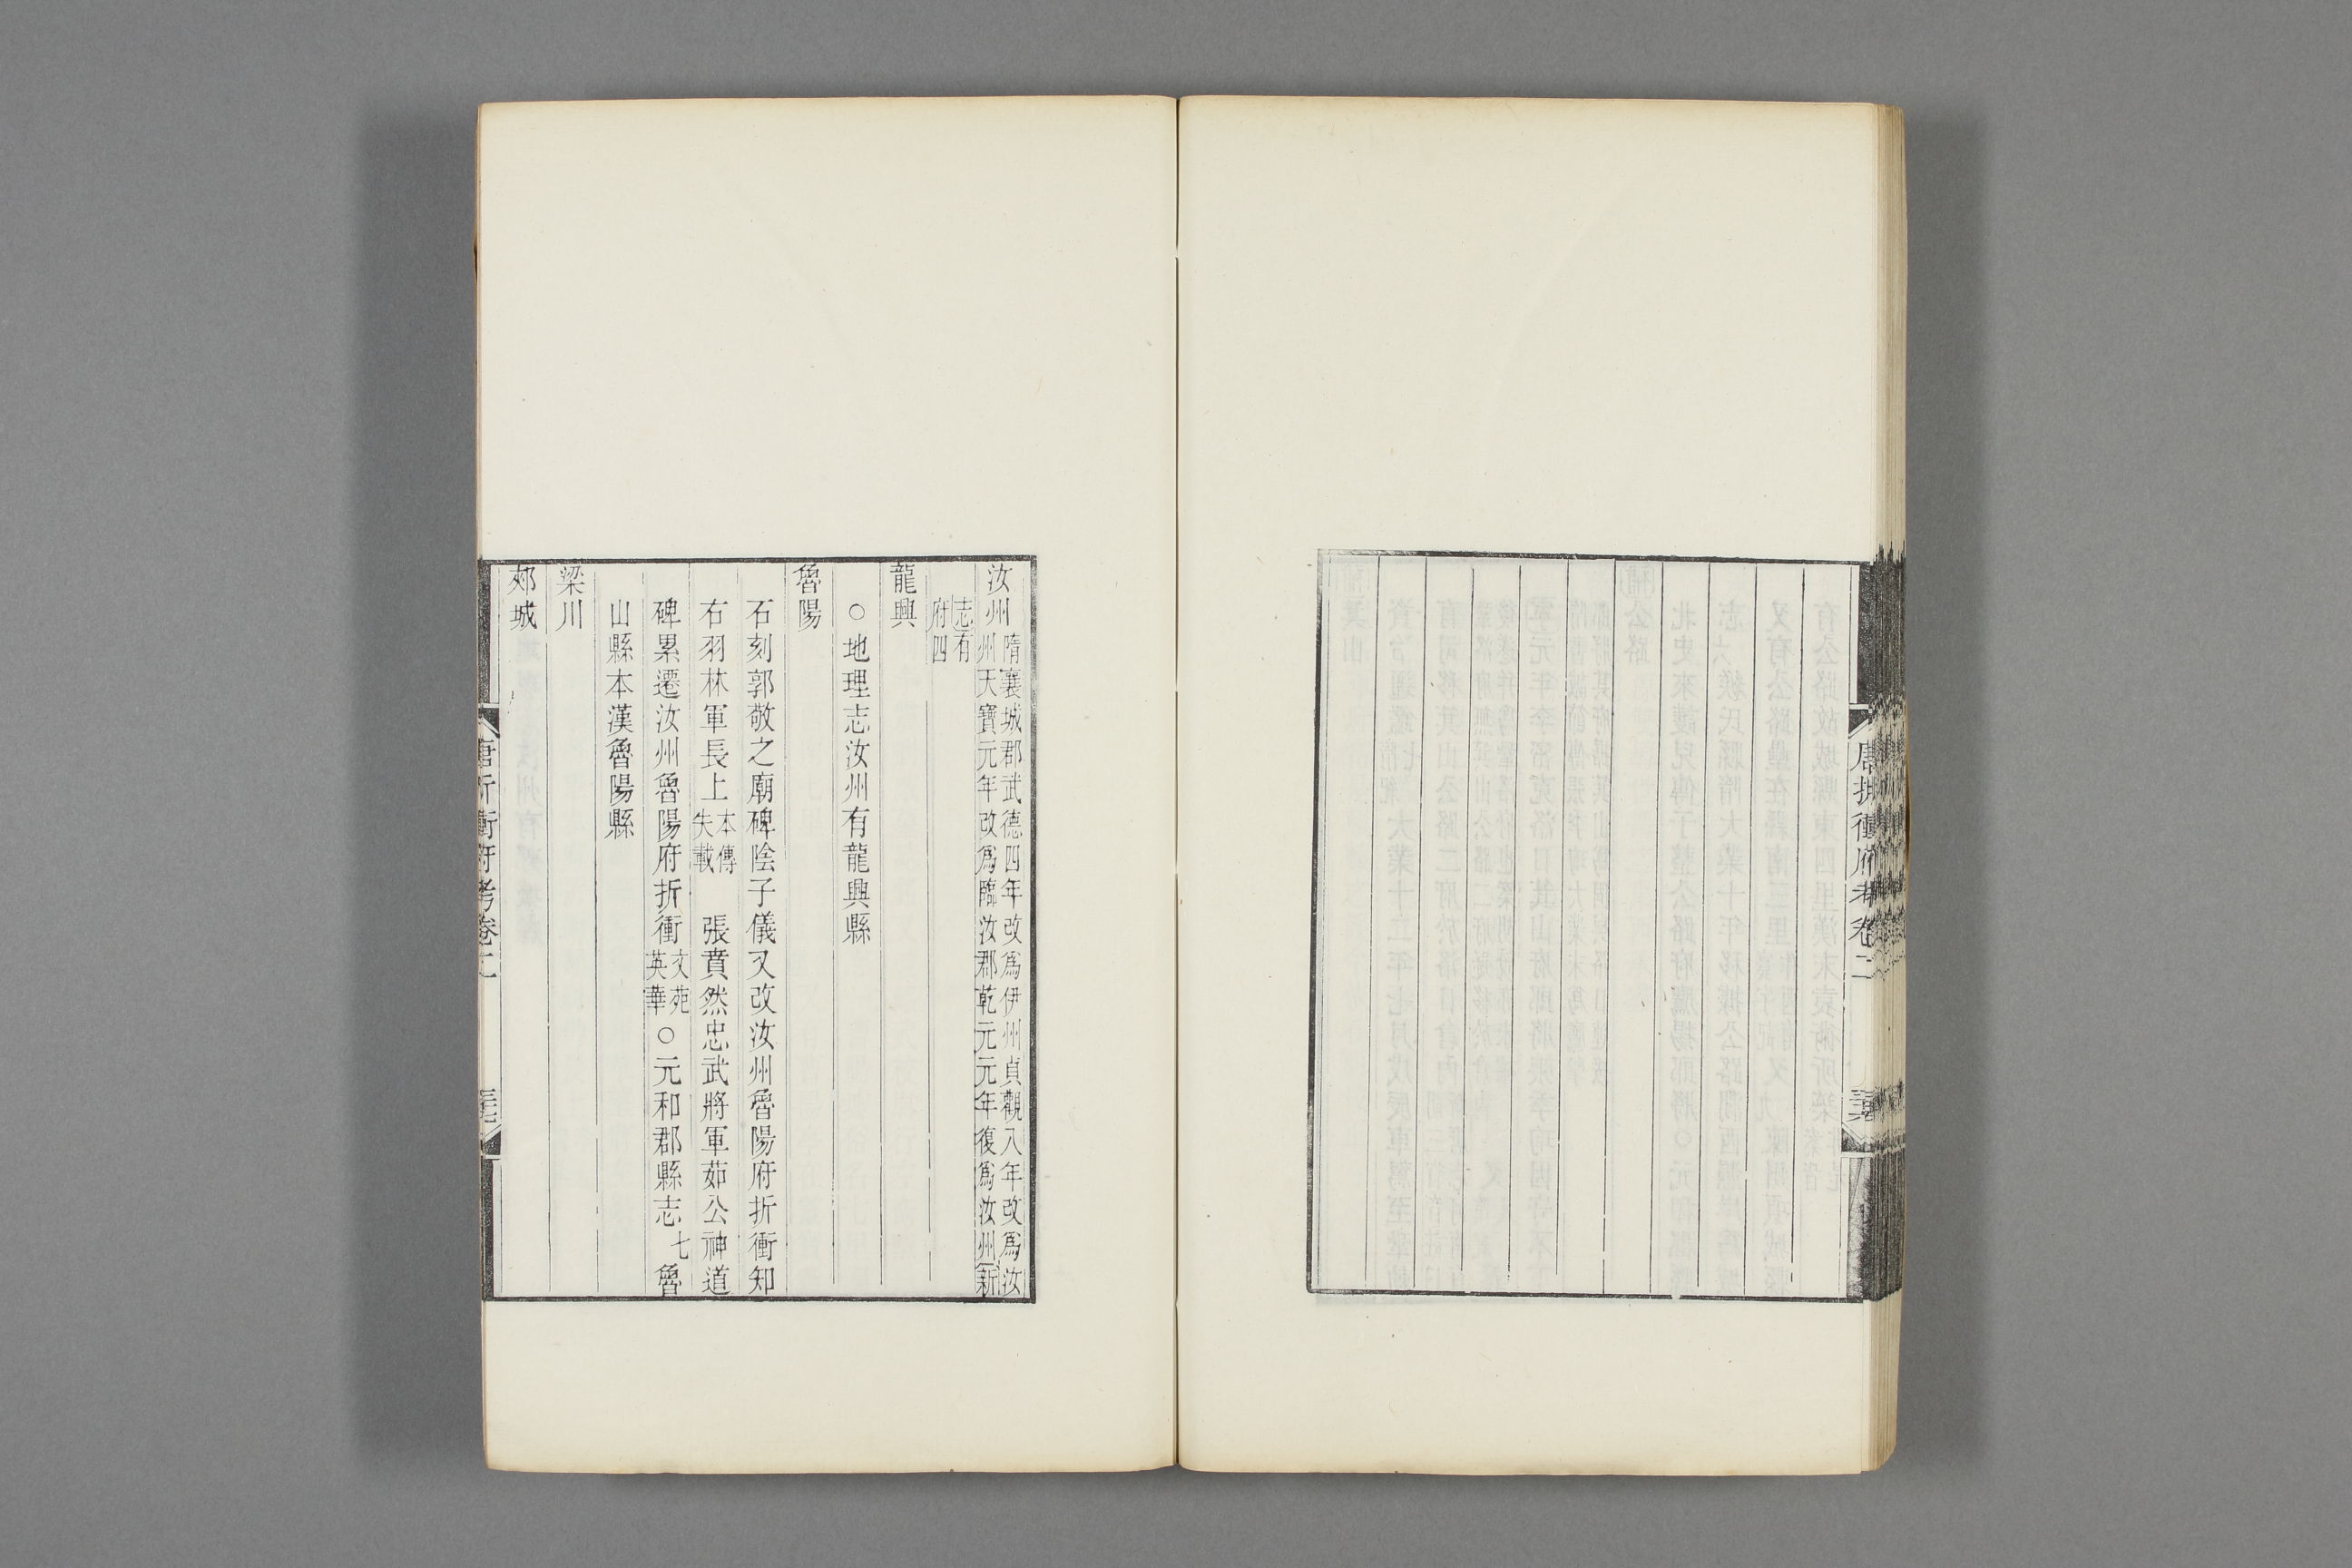 唐折衝府考卷二
汝州隋襄城郡武德四年改爲伊州貞觀八年改爲汝
州天寶元年改爲臨汝郡乾元元年復爲汝州新
志有
府四
龍興
○地理志汝州有龍興縣
魯陽
石刻郭敬之廟碑陰子儀又改汝州魯陽府折衝知
右羽林軍長上本傳失載 張賁然忠武將軍茹公神道
碑累遷汝州魯陽府折衝文苑英華○元和郡縣志七魯
山縣本漢魯陽縣
梁川
郟城
唐折衝府考卷二